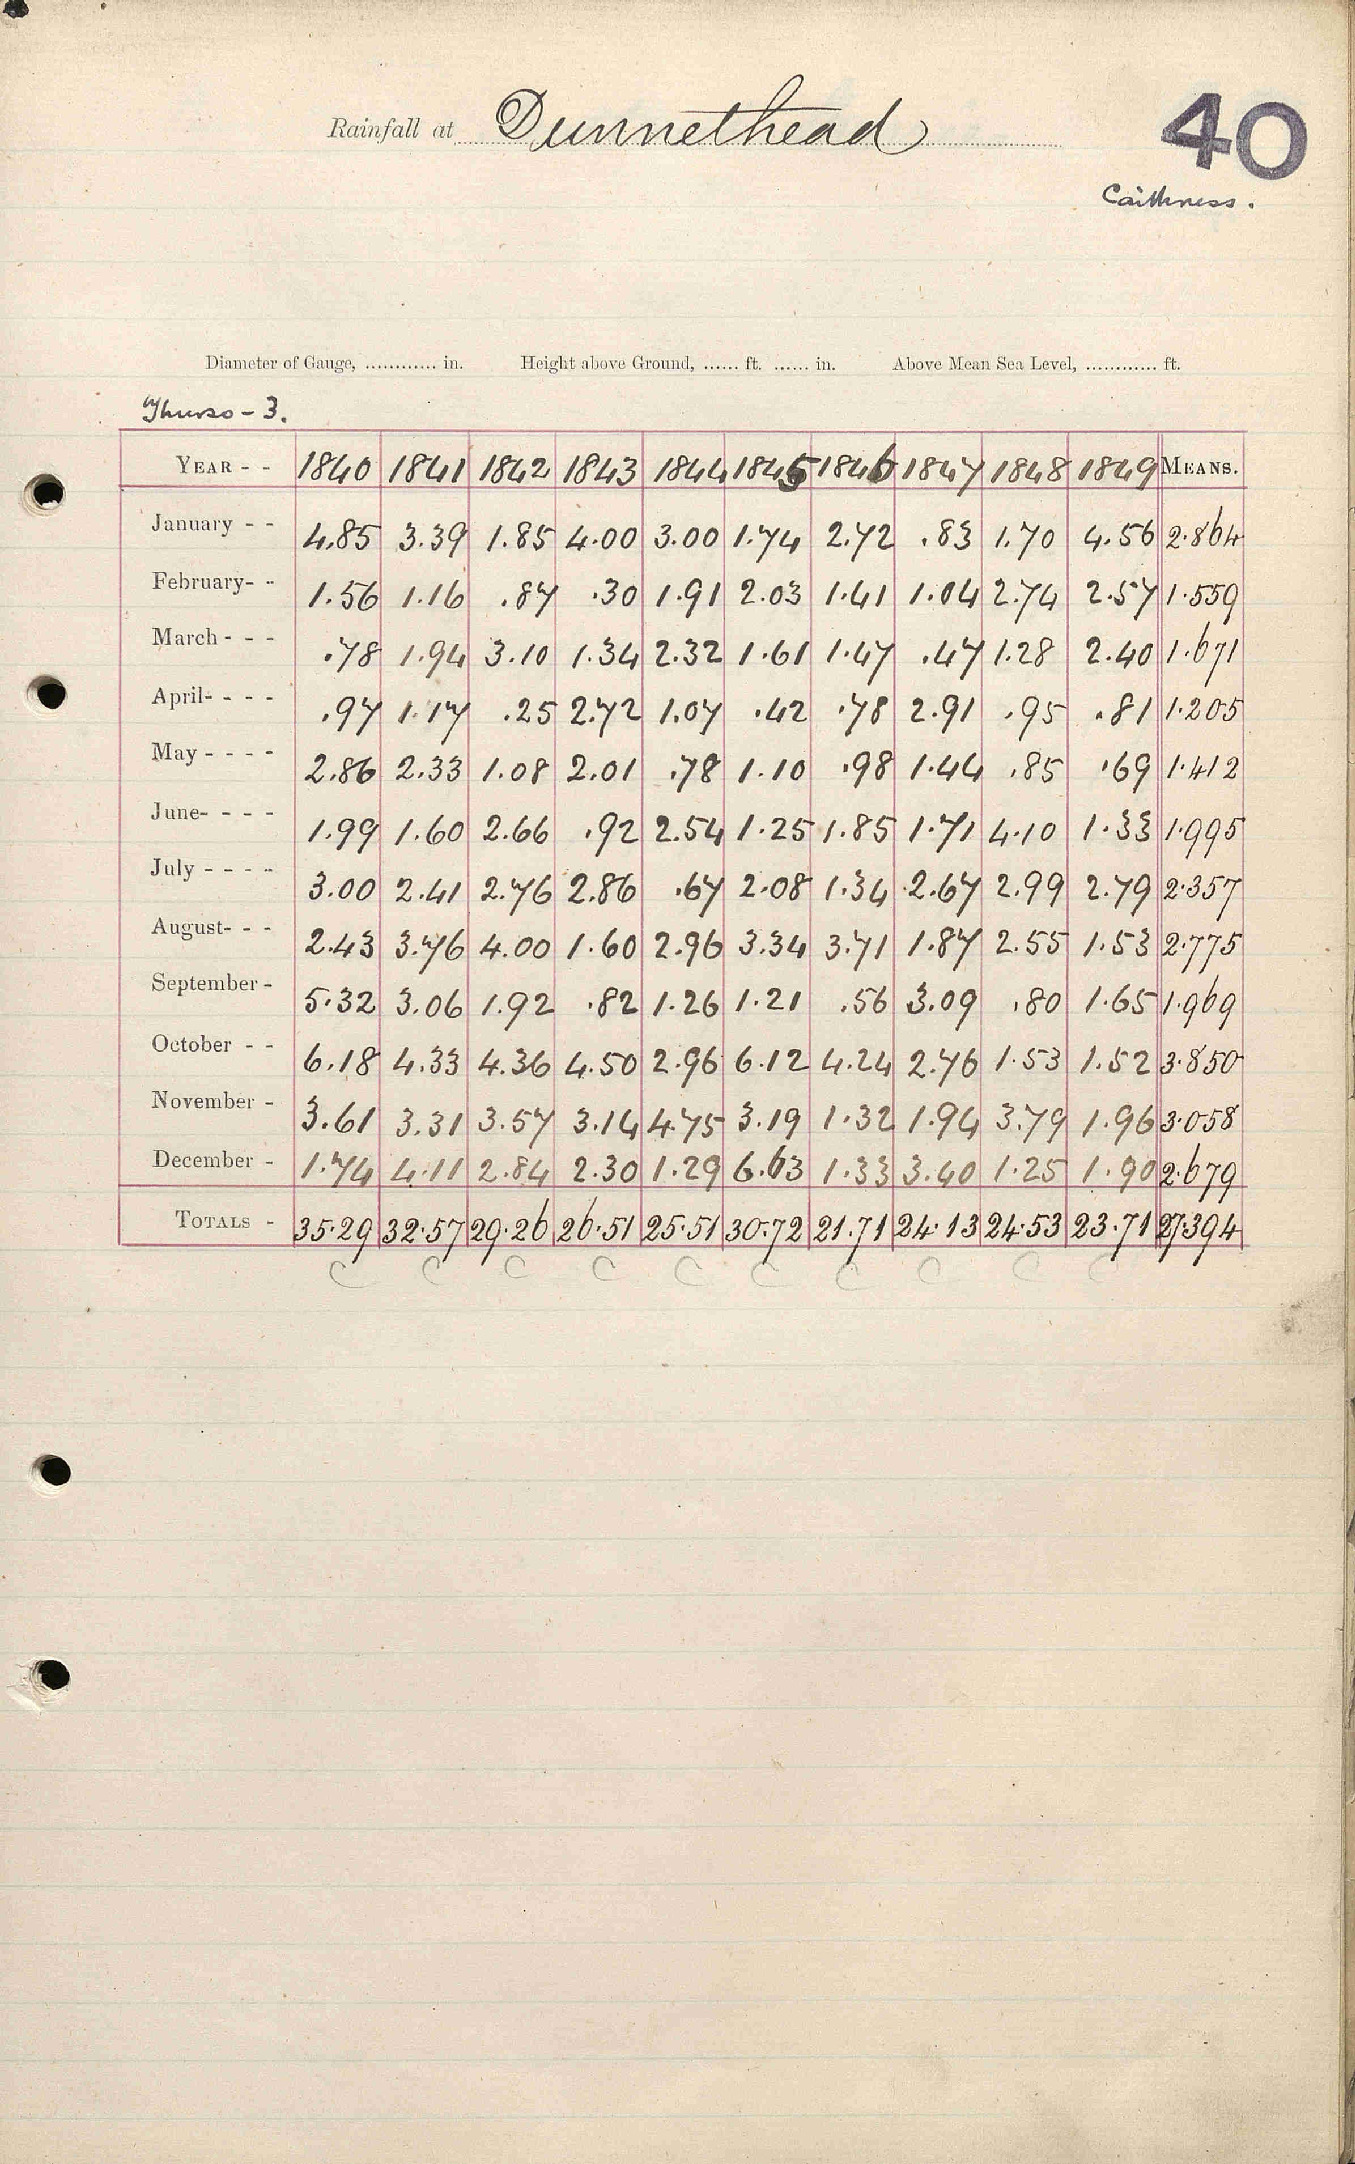 Rainfall at Dunnethead
40
Caithness.
Diameter of Gauge, ............ in. Height above Ground, ...... ft. ...... in. Above Mean Sea Level, ............ ft.
Thurso - 3.
YEAR - - 1840 1841 1842 1843 1844 1845 1846 1847 1848 1849 MEANS.
January - - 4.85 3.39 1.85 4.00 3.00 1.74 2.72 .83 1.70 4.56 2.864
February- - 1.56 1.16 .87 .30 1.91 2.03 1.41 1.04 2.74 2.57 1.559
March - - - .78 1.94 3.10 1.34 2.32 1.61 1.47 .47 1.28 2.40 1.671
April- - - - .97 1.17 .25 2.72 1.07 .42 .78 2.91 .95 .81 1.205
May - - - - 2.86 2.33 1.08 2.01 .78 1.10 .98 1.44 .85 .69 1.412
June- - - - 1.99 1.60 2.66 .92 2.54 1.25 1.85 1.71 4.10 1.33 1.995
July - - - - 3.00 2.41 2.76 2.86 .67 2.08 1.34 2.67 2.99 2.79 2.357
August- - - 2.43 3.76 4.00 1.60 2.96 3.34 3.71 1.87 2.55 1.53 2.775
September - 5.32 3.06 1.92 .82 1.26 1.21 .56 3.09 .80 1.65 1.969
October - - 6.18 4.33 4.36 4.50 2.96 6.12 4.24 2.76 1.53 1.52 3.850
November - 3.61 3.31 3.57 3.14 4.75 3.19 1.32 1.94 3.79 1.96 3.058
December - 1.74 4.11 2.84 2.30 1.29 6.63 1.33 3.40 1.25 1.90 2.679
TOTALS - 35.29 32.57 29.26 26.51 25.51 30.72 21.71 24.13 24.53 23.71 27.394
C C C C C C C C C C